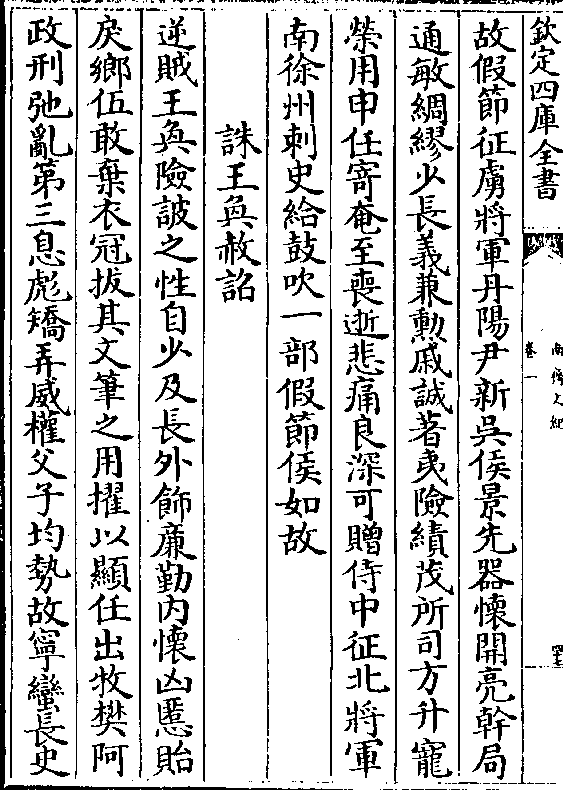 欽定四庫全書
南齊文紀
卷一
故假節征虜將軍丹陽尹新吳侯景先器懷開亮幹局
通敏綢繆少長義兼勲戚誠著夷險績茂所司方升寵
榮用申任寄奄至喪逝悲痛良深可贈侍中征北將軍
南徐州刺史給鼓吹一部假節侯如故
誅王奐赦詔
逆賊王奐險詖之性自少及長外飾廉勤内懷凶慝貽
戾鄉伍敢棄衣冠拔其文筆之用擢以顯任出牧樊阿
政刑弛亂第三息彪矯弄威權父子均勢故寧蠻長史